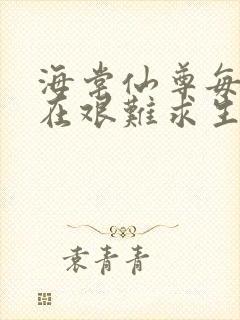 海棠仙尊每
在艰難求生
袁青青